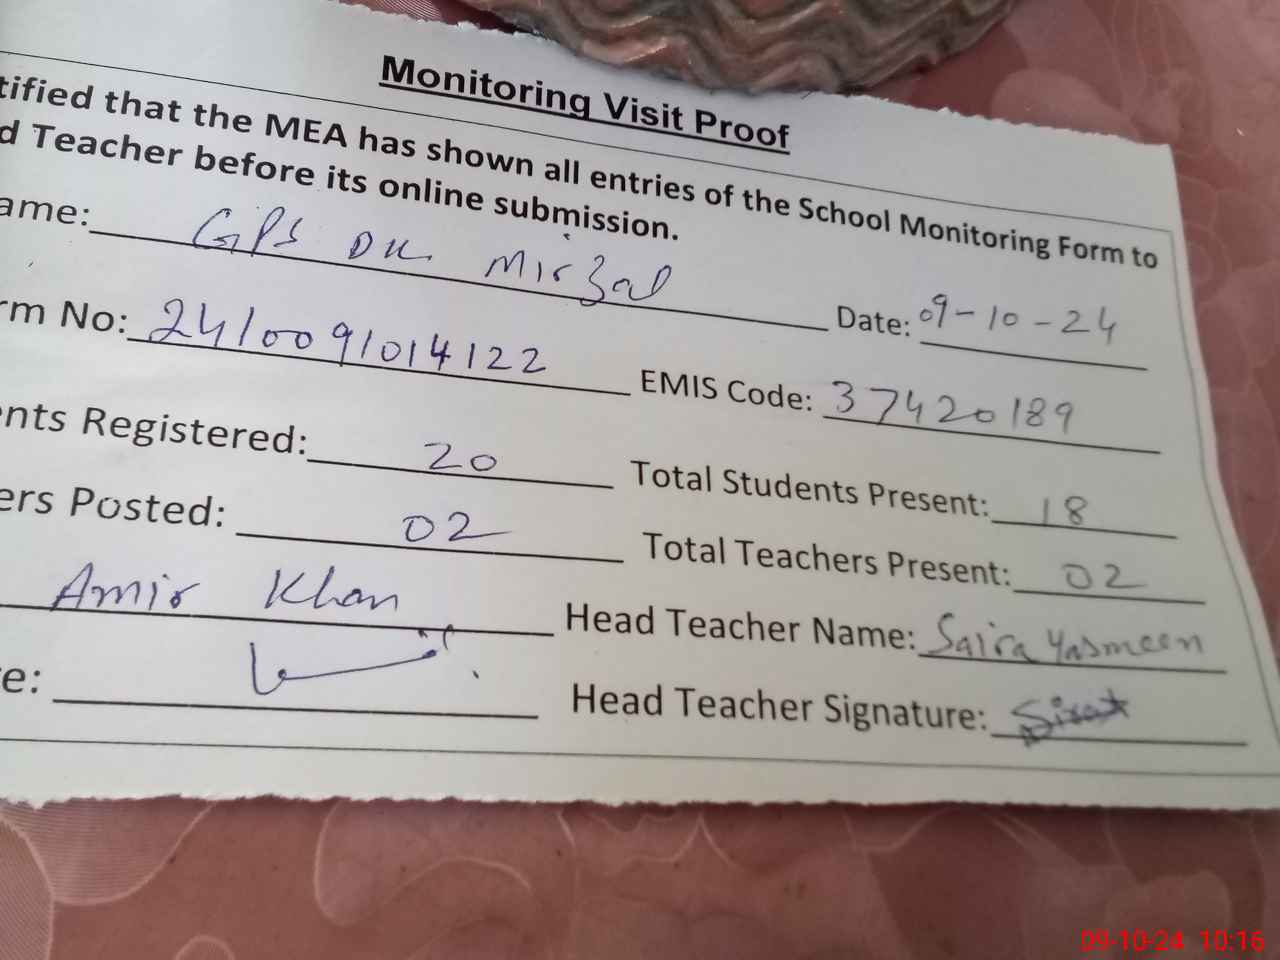 Monitoring Visit Proof
tified that the MEA has shown all entries of the School Monitoring Form to
d Teacher before its online submission.
ame: GPS DK Mirzal Date: 09-10-24
rm No: 2410091014122 EMIS Code: 37420189
ents Registered: 20 Total Students Present: 18
ers Posted: 02 Total Teachers Present: 02
Amir Khan Head Teacher Name: Saira Yasmeen
e: Head Teacher Signature:
09-10-24 10:16